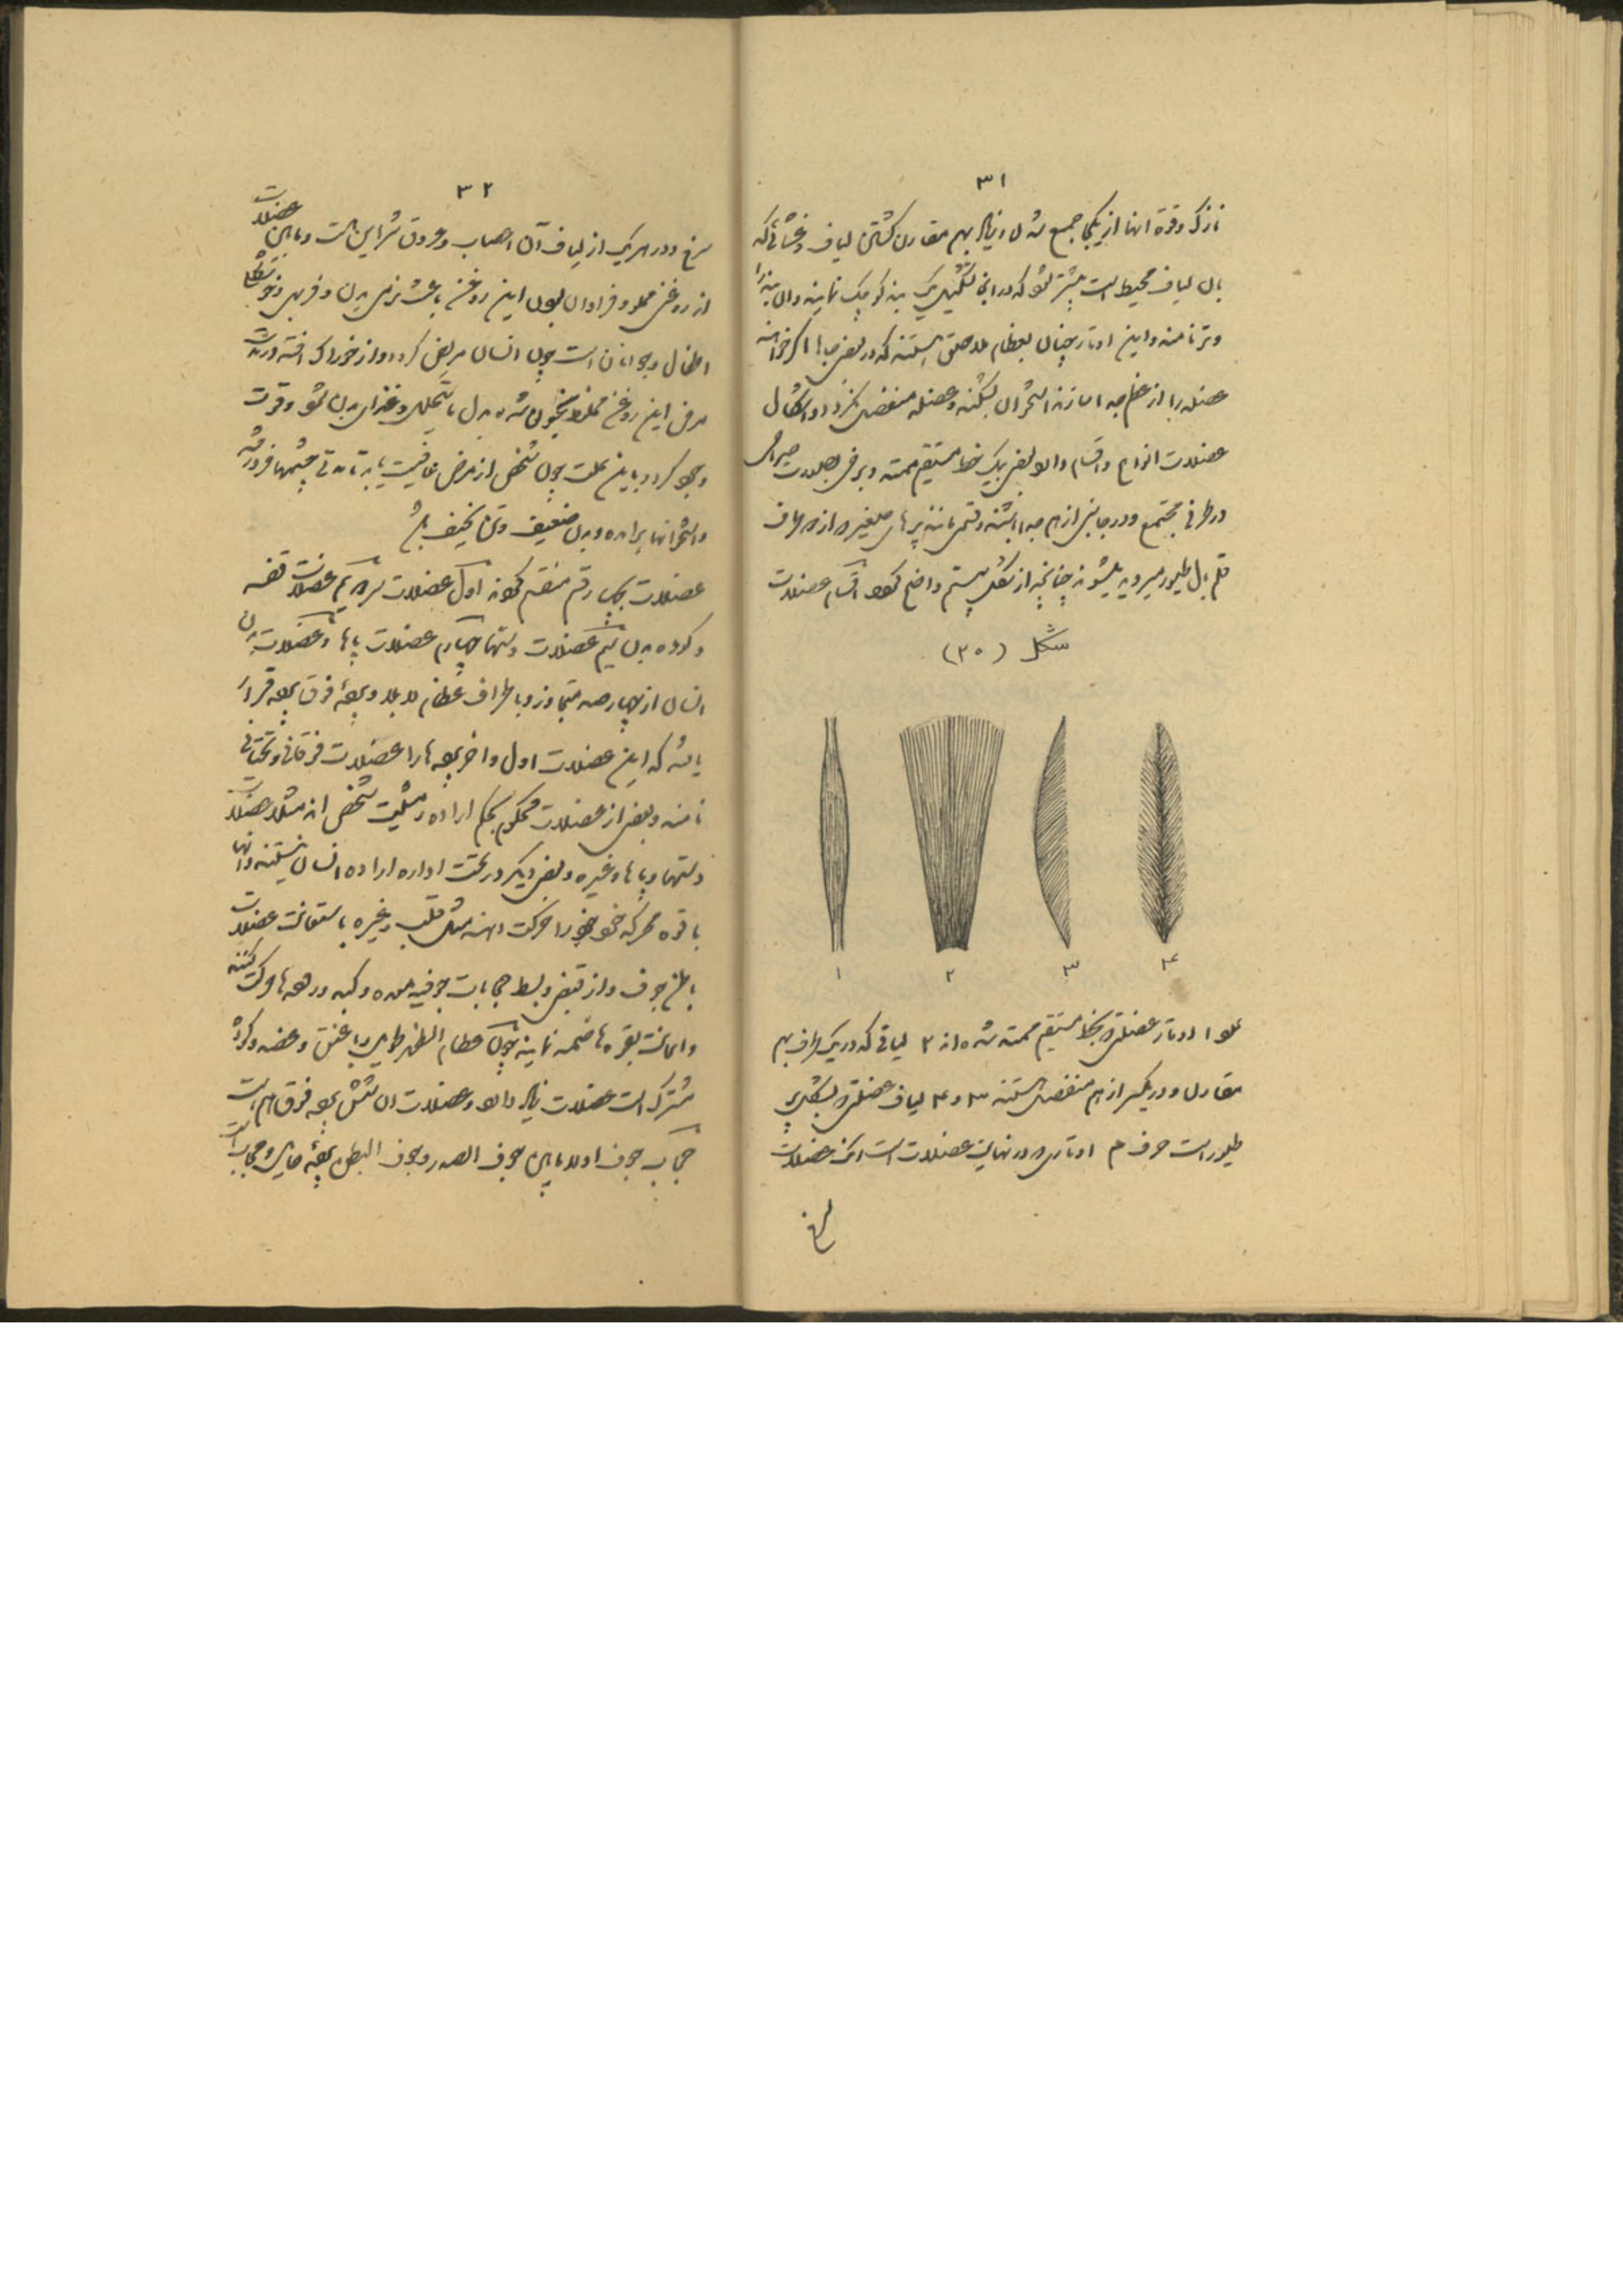 ۳۱
نازک و قوة انها از یکجا جمع شدن و زیاد بهم مقارن کشتن لیاف و غشائی که
بان لیاف محیط است بیشتر شود که در انجا تشکیل یک بند کوچک نمایند و ان بند را
وتر نامند و این اوتار چنان بعظام ملاصق هستند که در بعض جاها اگر خواهند
عضله را از عظم جدا سازند استخوان بشکند و عضله منفصل نگردد و اشکال
عضلات انواع و اقسام دارد بعض بیک خط مستقیم ممتد و برخی بصورت
در طرفی مجتمع و در جانبی از هم جدا باشند و قسمی مانند پرهای صغیره از اطراف
قلم بال طیور میروید میشوند چنانچه از شکل بیستم واضح شود اقسام عضلات
شکل (۲۰)
۱
۲
۳
۴
اوتار عضلتی که بخط مستقیم ممتد شده اند ۲ لیافی که در یک طرف بهم
مقارن و در دیگر از هم منفصل هستند ۳ و ۴ لیاف عضلتی که بشکل پر
طیور است حرف م اوتاری که در نهایت عضلات است رنگ عضلات
سرخ
۳۲
سرخ و در هر یک از لیاف آن اعصاب و عروق شراین است و مابین عضلات
از روغن مملو و فراوان بودن این روغن باعث نرمی بدن و فربهی و خوشگلی
اطفال و جوانان است چون انسان مریض گردد و از خوراک افتد در مدت
مرض این روغن مخلوط بخون شده بدل ما یتحلل و غذای بدن شود و قوت
وجود گردد باین علت چون شخص از مرض عافیت یابد تا مدتی چشمها فرو رفته
و استخوانها برامده و بدن ضعیف و تن نحیف باشد
عضلات بچهار قسم منقسم شوند اول عضلات سر دویم عضلات قفسه
و گرده بدن سیم عضلات دستها چهارم عضلات پاها و عضلات بدن
انسان از چهارصد متجاوز و باطراف عظام لابلا و بعضه فوق بعضه قرار
یافته که این عضلات اول و اخر بعضها را عضلات فوقانی و تحتانی
نامند و بعض از عضلات محکوم بحکم اراده و مشیت شخص اند مثلا عضلات
دستها و پاها و غیره و بعض دیگر در تحت اداره اراده انسان نیستند و انها
با قوه محرکه خود خود را حرکت دهند مثل قلب و غیره باستعانت عضلات
باطن جوف و از قبض و بسط حجابات جوفیه معده و کبد و رحمها حرکت کنند
و اعانت بقوه هاضمه نمایند چون عظام الظهر طویل با عنق و عضد و گرده
مشترک است عضلات زیاد دارد و عضلات ان شش بعضه فوق هم است
حجاب جوف اولا مابین جوف الصدر و جوف البطن بعضه حایل و حجاب است